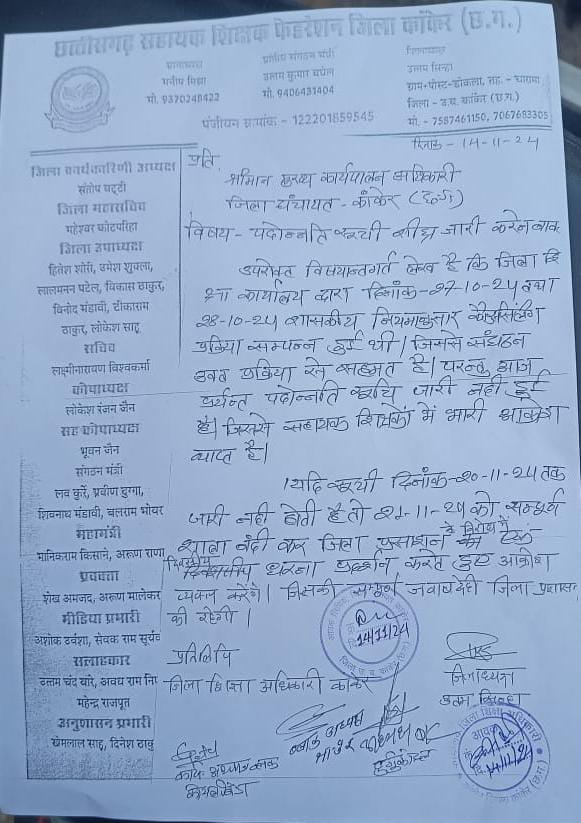 छत्तीसगढ़ सहायक शिक्षक फेडरेशन जिला कांकेर (छ.ग.)
मनीष मिश्रा
मो. 9370248422
प्रांतीय संगठन मंत्री
उत्तम कुमार पटेल
मो. 9406431404
जिलाध्यक्ष
उत्तम सिन्हा
ग्राम+पोस्ट-डोकला, तह. - चारामा
जिला - उ.ब. कांकेर (छ.ग.)
मो. - 7587461150, 7067693305
पंजीयन क्रमांक - 122201859545
दिनांक - 14-11-24
जिला कार्यकारिणी अध्यक्ष
संतोष पट्टी
जिला महासचिव
महेश्वर कोटपरिहा
जिला उपाध्यक्ष
हितेश शोरी, उमेश शुक्ला,
लालमनन पटेल, विकास ठाकुर,
विनोद मंडावी, टीकाराम
ठाकुर, लोकेश साहू
सचिव
लक्ष्मीनारायण विश्वकर्मा
कोषाध्यक्ष
लोकेश रंजन जैन
सह कोषाध्यक्ष
भूवन जैन
संगठन मंत्री
लव कुर्रे, प्रवीण दुग्गा,
शिवनाथ मंडावी, बलराम भोयर
महामंत्री
मानिकराम किसाने, अरूण राणा
प्रवक्ता
शेख अमजद, अरूण मालेकर
मीडिया प्रभारी
अशोक ठर्वशा, सेवक राम सूर्यव
सलाहकार
उत्तम चंद यारे, अवध राम नि
महेन्द्र राजपूत
अनुशासन प्रभारी
खेमलाल साहू, दिनेश ठाकु
प्रति,
श्रीमान मुख्य कार्यपालन अधिकारी
जिला पंचायत - कांकेर (छ.ग.)
विषय - पदोन्नति सूची शीघ्र जारी करने बाब
उपरोक्त विषयान्तर्गत लेख है कि जिला शि
क्षा कार्यालय द्वारा दिनांक-27-10-24 तथा
28-10-24 शासकीय नियमानुसार कौंउसिलिंग
प्रक्रिया सम्पन्न हुई थी। जिससे संगठन
उक्त प्रक्रिया से सहमत है। परन्तु आज
पर्यन्त पदोन्नति सूचि जारी नही हुई
है। जिससे सहायक शिक्षकों में भारी आक्रोश
व्याप्त है।
यदि सूची दिनांक-20-11-24 तक
जारी नही होती है तो 21-11-24 को सम्पूर्ण
शाला बंदी कर जिला प्रशासन के विरोध में एक
दिवसीय धरना प्रदर्शन करते हुए आक्रोश
व्यक्त करेंगे। जिसकी सम्पूर्ण जवाबदेही जिला प्रशास
की रहेगी।
14/11/24
प्रतिलिपि
जिला शिक्षा अधिकारी कांकेर
जिलाध्यक्ष
उत्तम सिन्हा
ब्लाक अध्यक्ष